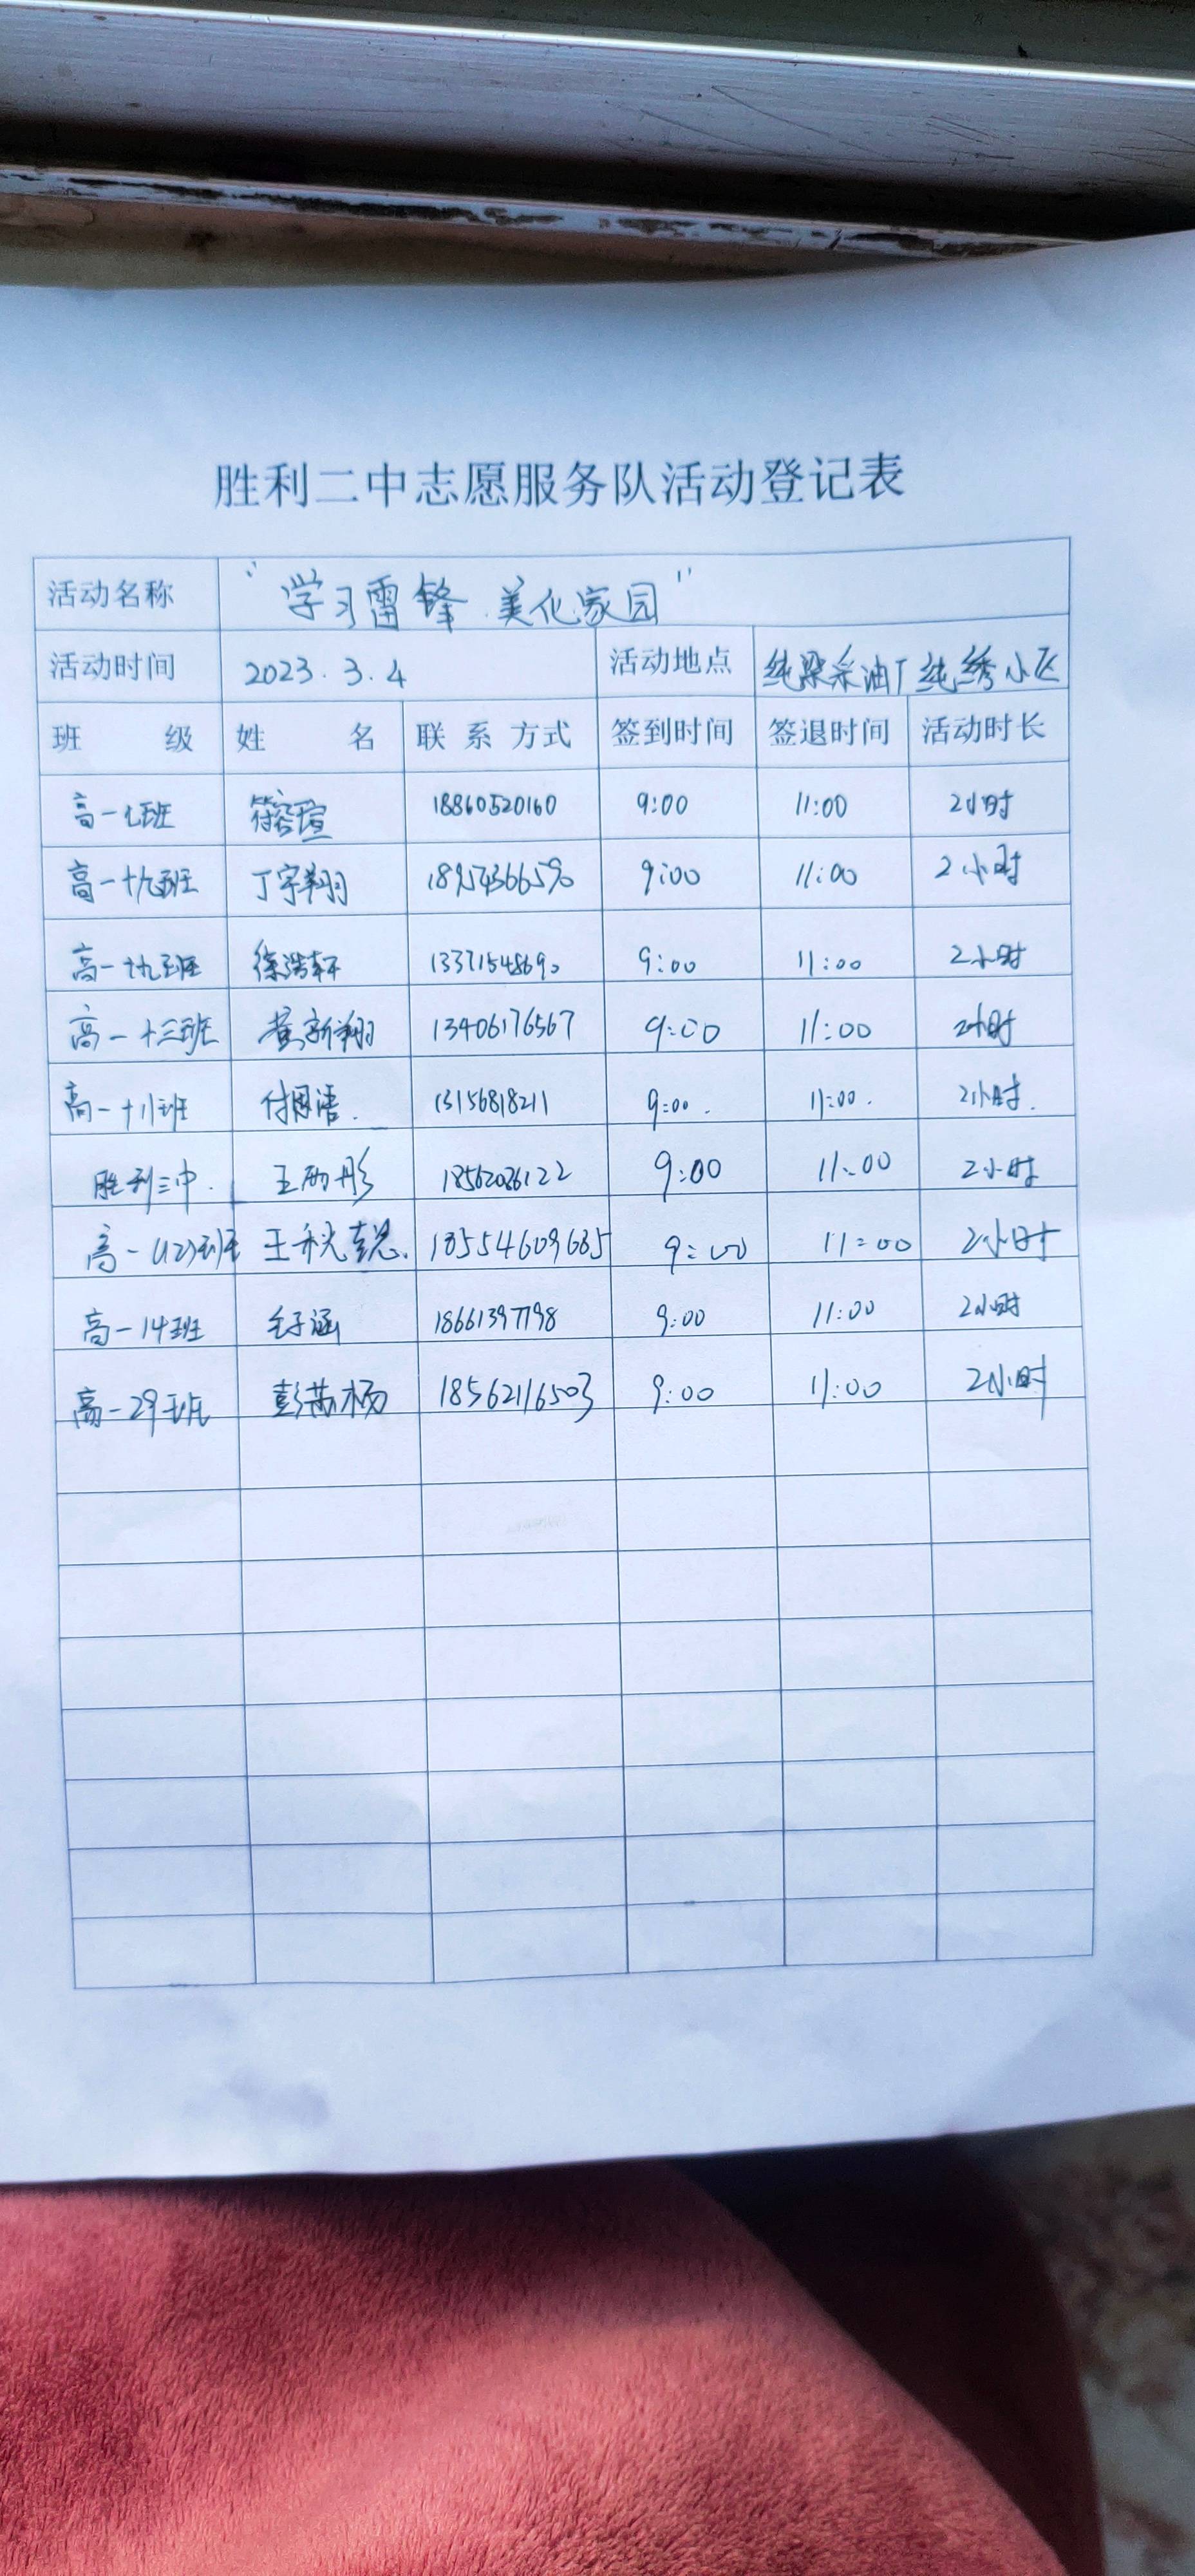 胜利二中志愿服务队活动登记表
活动名称 "学习雷锋 美化家园"
活动时间 2023.3.4 活动地点 纯梁采油厂纯绣小区
班 级 姓 名 联 系 方式 签到时间 签退时间 活动时长
高一七班 符容瑄 18860520160 9:00 11:00 2小时
高一十九班 丁宇翔 9:00 11:00 2小时
高一十九班 徐浩轩 13371548690 9:00 11:00 2小时
高一十三班 黄新翔 13406176567 9:00 11:00 2小时
高一十八班 付思语. 13156818211 9:00. 11:00. 2小时.
胜利二中. 王 彤 9:00 11:00 2小时
高一(12)班 王 18554609685 9:00 11:00 2小时
高一14班 涵 18661397798 9:00 11:00 2小时
高一29班 彭 杨 18562116503 9:00 11:00 2小时